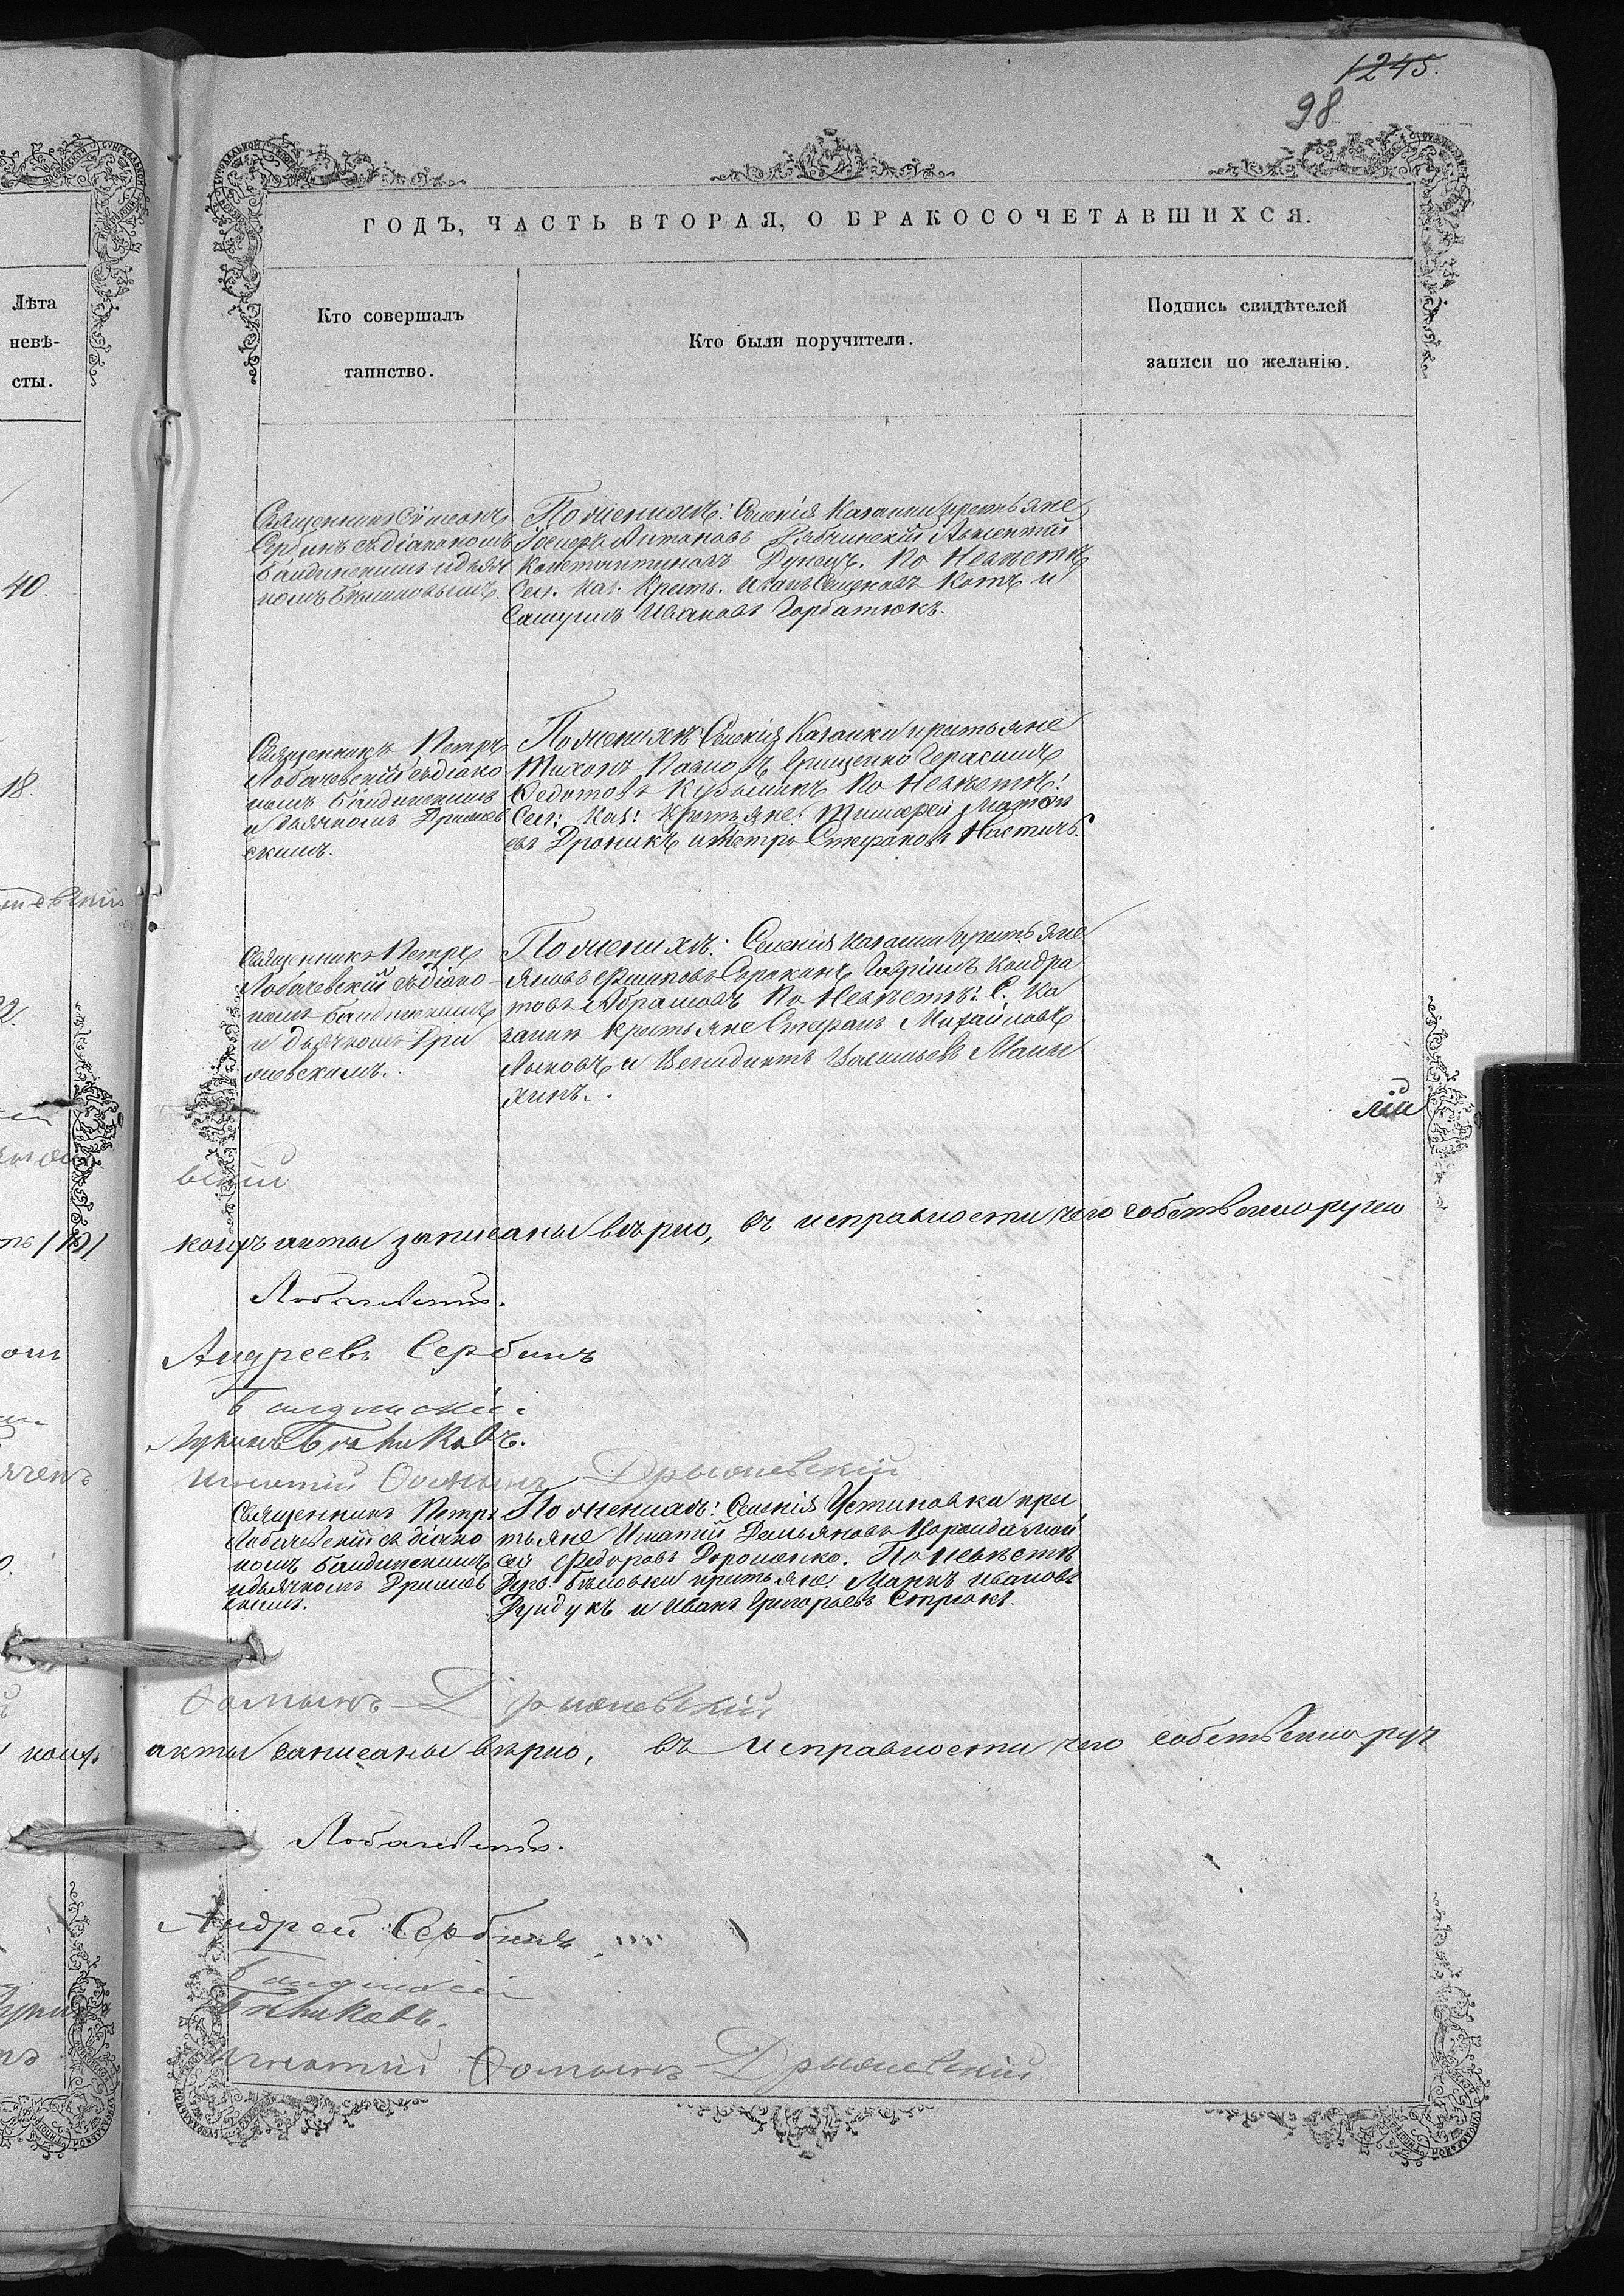 1245.
98
ГОДЪ, ЧАСТЬ ВТОРАЯ, О БРАКОСОЧЕТАВШИХСЯ.
Лѣта
невѣ-
сты.
Кто совершалъ
таинство.
Кто были поручители.
Подпись свидѣтелей
записи по желанію.
40.
Священникъ Сѵмеонъ
Сербинъ съ діакономъ
Бандинскимъ и дьяч
комъ Бѣликовымъ.
По женихѣ: Селенія Казанки крестьяне
Антоновъ Рябчинскій Авксентій
Константиновъ Дунецъ. По Невѣстѣ
Сел. Каз. Крест. Иванъ Семеновъ Котъ и
Самуилъ Ивановъ Горбатюкъ.
18.
Священникъ Петръ
Лобачевскій съ діако
номъ Бандинскимъ
и дьячкомъ Дримов
скимъ.
По женихѣ Селенія Казанки крестьяне
Тихонъ Павловъ Грищенко Герасимъ
Федотовъ Кузьминъ По Невѣстѣ:
Сел: Каз: Крестьяне: Тимофей Матвѣ
евъ Дроникъ и Петръ Стефановъ Настичъ.
22.
Священникъ Петръ
Лобачевскій съ діако-
номъ Бандинскимъ
и Дьячкомъ Дри
мовскимъ.
По женихѣ: Селенія Казанки крестьяне
Яковъ Гавріилъ Кондра
товъ Абрамовъ По Невѣстѣ: С. Ка
занки крестьяне Стефанъ Михайловъ
Лысовъ и Венидиктъ Васильевъ Мали
хинъ.
лій
вскій
коихъ акты записаны вѣрно, въ исправности чего собственноручно
Лобачевскій.
Андреевъ Сербинъ
Бандинскій.
Лукинъ Бѣликовъ.
Игнатій Ѳоминъ Дрымовскій
Священникъ Петръ
Лобачевскій съ діако
номъ Бандинскимъ
и дьячкомъ Дримов
скимъ.
По женихѣ: Селенія Устиновки крес
тьяне Игнатій Демьяновъ
сей Федоровъ Дорошенко. По невѣстѣ
Дер. Бѣловки крестьяне: Маркъ Ивановъ
Рундукъ и Иванъ Григорьевъ Стрюкъ.
Ѳоминъ Дрымовскій
коихъ акты записаны вѣрно, въ исправности чего собственноруч
Лобачевскій.
Андрей Сербинъ
Бандинскій
Бѣликовъ.
Игнатій Ѳоминъ Дрымовскій